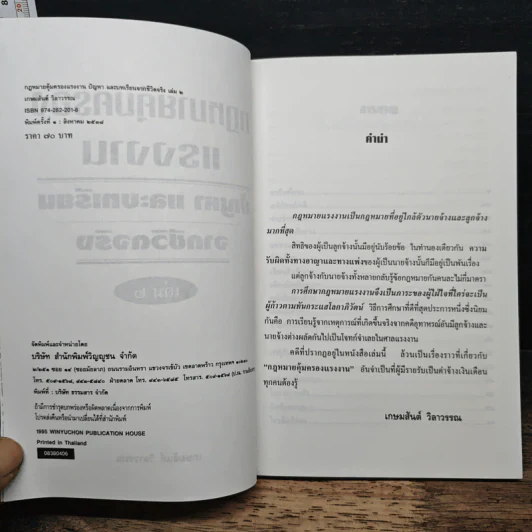 กฎหมายคุ้มครองแรงงาน ปัญหา และบทเรียนจากชีวิตจริง เล่ม ๒
เกษมสันต์ วิลาวรรณ
พิมพ์ครั้งที่ ๑ : สิงหาคม
ราคา ๗๐ บาท
จัดพิมพ์และจำหน่ายโดย
บริษัท สำนักพิมพ์วิญญูชน จำกัด
พิมพ์ที่ : บริษัท ธรรมสาร จำกัด
ถ้ามีการชำรุดบกพร่องหรือผิดพลาดเนื่องจากการพิมพ์
โปรดส่งคืนหรือนำมาเปลี่ยนได้ที่สำนักพิมพ์
1995 WINYUCHON PUBLICATION HOUSE
Printed in Thailand
08380406
คำนำ
กฎหมายแรงงานเป็นกฎหมายที่อยู่ใกล้ตัวนายจ้างและลูกจ้าง
มากที่สุด
สิทธิของผู้เป็นลูกจ้างนั้นมีอยู่นับร้อยข้อ ในทำนองเดียวกัน ความ
รับผิดทั้งทางอาญาและทางแพ่งของผู้เป็นนายจ้างนั้นก็มีอยู่เป็นพันเรื่อง
แต่ลูกจ้างกับนายจ้างทั้งหลายกลับรู้ข้อกฎหมายกันคนละไม่กี่มาตรา
การศึกษากฎหมายแรงงานจึงเป็นภาระของผู้ไม่ใจที่ใคร่จะเป็น
ผู้ก้าวตามทันกระแสโลกาภิวัตน์ วิธีการศึกษาที่ดีที่สุดประการหนึ่งซึ่งนิยม
กันคือ การเรียนรู้จากเหตุการณ์ที่เกิดขึ้นจริงจากคดีอุทาหรณ์อันมีลูกจ้างและ
นายจ้างต่างผลัดกันไปเป็นโจทก์จำเลยในศาลแรงงาน
คดีที่ปรากฏอยู่ในหนังสือเล่มนี้ ล้วนเป็นเรื่องราวที่เกี่ยวกับ
"กฎหมายคุ้มครองแรงงาน" อันจำเป็นที่ผู้มีรายรับเป็นค่าจ้างเงินเดือน
ทุกคนต้องรู้
เกษมสันต์ วิลาวรรณ